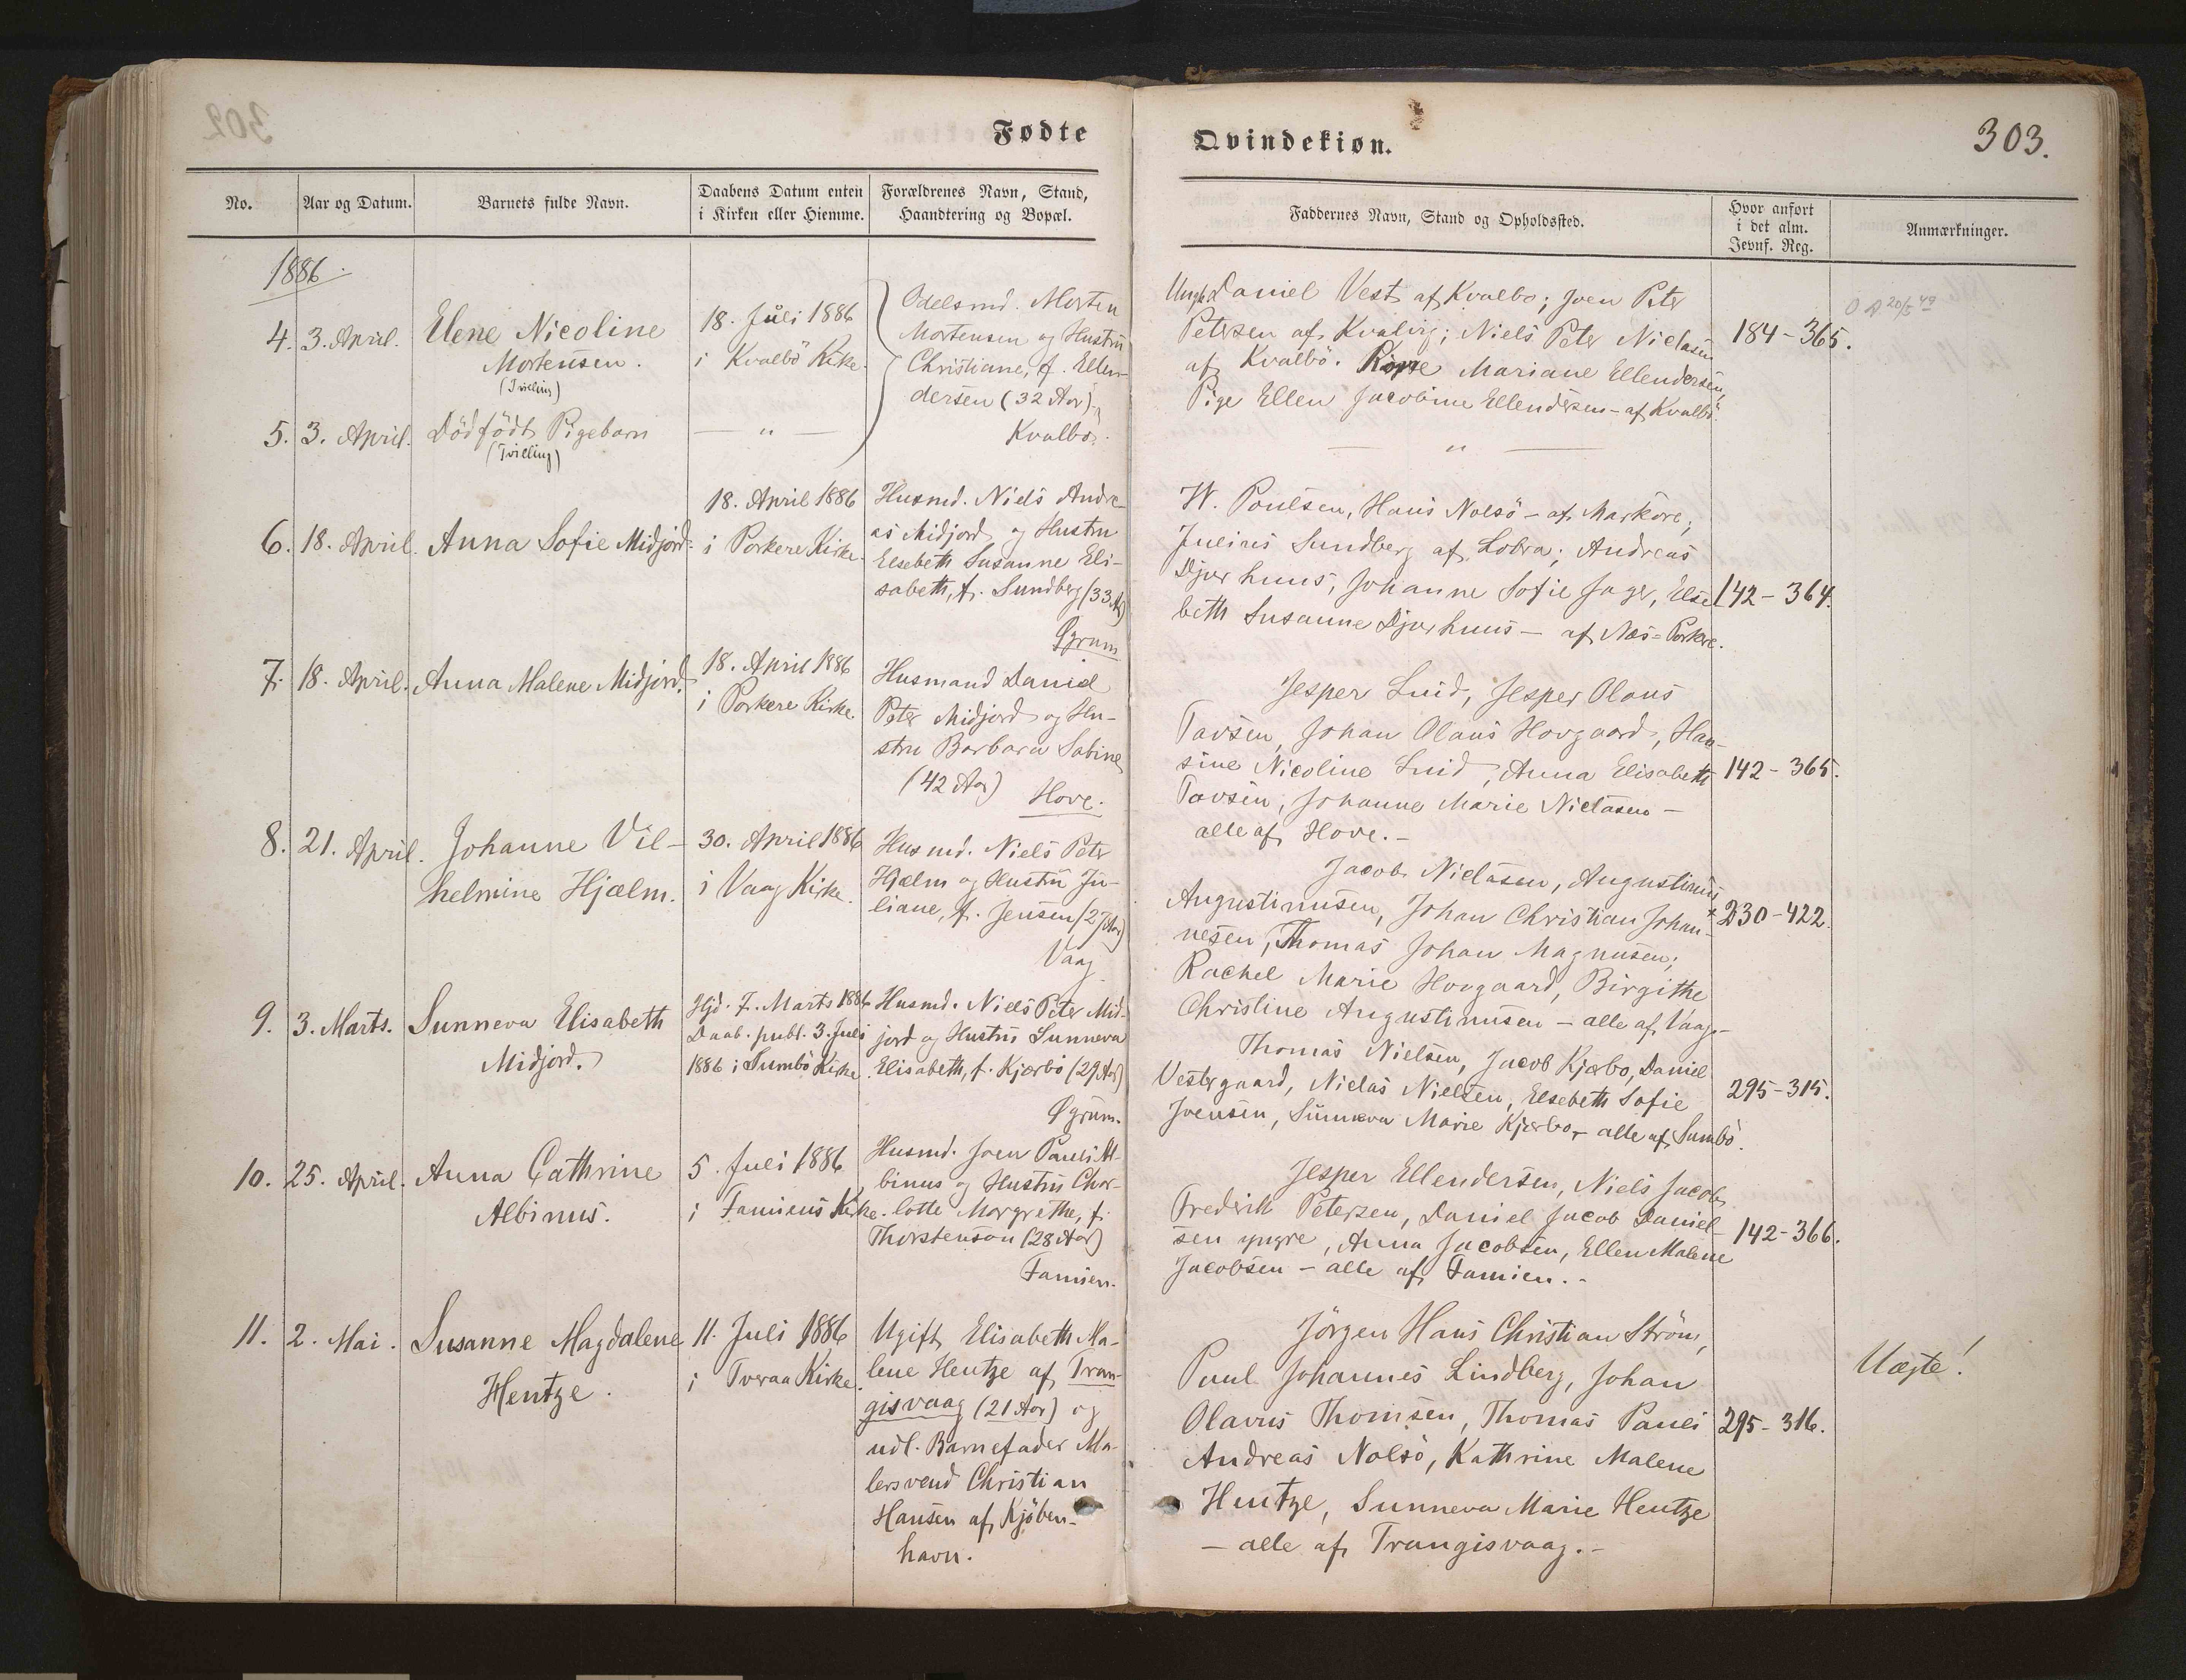 302
Fødte
No.
Aar og Datum.
Barnets fulde Navn.
Daabens Datum enten
i Kirken eller Hiemme.
Forældrenes Navn, Stand,
Haandtering og Bopæl.
1886.
4. 3. April.
Elene Nicoline
Mortensen.
(Tvilling)
18. Juli 1886
i Kvalbö Kirke.
Odelsmd. Morten
Mortensen og Hustru
Christiane, f. Ellen-
dersen (32 Aar)
Kvalbö.
5. 3. April.
Dödfödt Pigebarn
(Tvilling)
— " —
6. 18. April.
Anna Sofie Midjord.
18. April 1886
i Porkere Kirke.
Husmd. Niels Andre-
as Midjord og Hustru
Elsebeth Susanne Eli-
sabeth, f. Sundberg (33 Aar)
Øgrum
7. 18. April.
Anna Malene Midjord.
18. April 1886
i Porkere Kirke.
Husmand Daniel
Peter Midjord og Hu-
stru Barbara Sabine
(42 Aar)
Hove.
8. 21. April.
Johanne Vil-
helmine Hjælm.
30. April 1886
i Vaag Kirke.
Husmd. Niels Peter
Hjælm og Hustru Ju-
liane, f. Jensen (27 Aar)
Vaag
9. 3. Marts.
Sunneva Elisabeth
Midjord.
Hjd. 7. Marts 1886
Daab. publ. 3. Juli
1886 i Sumbö Kirke
Husmd. Niels Peter Mid-
jord og Hustru Sunneva
Elisabeth, f. Kjærbo (29 Aar)
Øgrum.
10. 25. April.
Anna Cathrine
Albinus.
5. Juli 1886
i Famiens Kirke.
Husmd. Joen Pauli Al-
binus og Hustru Char-
lotte Margrethe, f.
Thorstenson (28 Aar)
Famien.
11. 2. Mai.
Susanne Magdalene
Hentze.
11. Juli 1886
i Tveraa Kirke.
Ugift Elisabeth Ma-
lene Hentze af Tran-
gisvaag (21 Aar) og
udl. Barnefader Ma-
lersvend Christian
Hansen af Kjöben-
havn.
Qvindekiøn.
303.
Faddernes Navn, Stand og Opholdssted.
Hvor anført
i det alm.
Jevnf. Reg.
Anmærkninger.
Daniel Vest af Kvalbo; Joen Peter
Petersen af Kvalvig; Niels Peter Niclasen
af Kvalbö. Mariane Ellendersen,
Pige Ellen Jacobine Ellendersen – af Kvalbö.
184-365.
— " —
W. Poulsen, Hans Nolsö – af Marköre;
Julius Sundberg af Lobra; Andreas
Djurhuus, Johanne Sofie Jager, Else-
beth Susanne Djurhuus – af Næs = Porkere.
142-364.
Jesper Luid, Jesper Olaus
Tavsen, Johan Olaus Hovgaard, Han-
sine Nicoline Luid, Anna Elisabeth
Tavsen, Johanne Marie Niclasen –
alle af Hove. –
142-365.
Jacob Niclasen, Augustinus
Augustinusen, Johan Christian Johan-
nesen, Thomas Johan Magnusen;
Rachel Marie Hovgaard, Birgithe
Christine Augustinusen – alle af Vaag. –
230-422.
Thomas Nielsen, Jacob Kjærbo, Daniel
Vestergaard, Niclas Nielsen, Elsebeth Sofie
Joensen, Sunneva Marie Kjærbo, – alle af Sumbö.
295-315.
Jesper Ellendersen, Niels Jacob
Frederik Petersen, Daniel Jacob Daniel-
sen yngre, Anna Jacobsen, Ellen Malene
Jacobsen – alle af Famien. –
142-366.
Jörgen Hans Christian Ström,
Poul Johannes Lindberg, Johan
Olavus Thomsen, Thomas Pauli
Andreas Nolsö, Kathrine Malene
Hentze, Sunneva Marie Hentze
– alle af Trangisvaag. –
295-316.
Uægte!